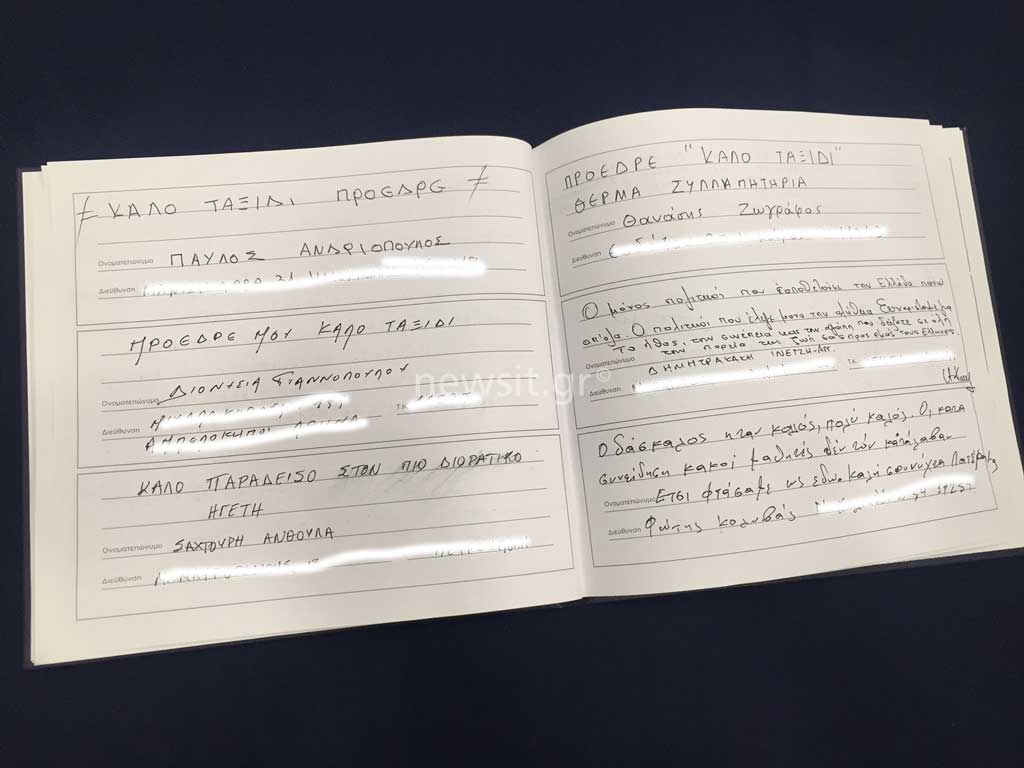 ≠ ΚΑΛΟ ΤΑΞΙΔΙ ΠΡΟΕΔΡΕ ≠
Ονοματεπώνυμο ΠΑΥΛΟΣ ΑΝΔΡΙΟΠΟΥΛΟΣ
Διεύθυνση
ΠΡΟΕΔΡΕ ΜΟΥ ΚΑΛΟ ΤΑΞΙΔΙ
Ονοματεπώνυμο ΔΙΟΝΥΣΙΑ ΓΙΑΝΝΟΠΟΥΛΟΥ
Διεύθυνση Τ.Κ.
ΑΜΠΕΛΟΚΗΠΟΙ ΑΘΗΝΑ
ΚΑΛΟ ΠΑΡΑΔΕΙΣΟ ΣΤΟΝ ΠΙΟ ΔΙΟΡΑΤΙΚΟ
ΗΓΕΤΗ
Ονοματεπώνυμο ΣΑΧΤΟΥΡΗ ΑΝΘΟΥΛΑ
Διεύθυνση
ΠΡΟΕΔΡΕ "ΚΑΛΟ ΤΑΞΙΔΙ"
ΘΕΡΜΑ ΣΥΛΛΠΑΠΗΤΗΡΙΑ
Ονοματεπώνυμο Θανάσης Ζωγράφος
Διεύθυνση
Ο μόνος πολιτικός που τοποθετούσε την Ελλάδα πάνω
απ'όλα. Ο πολιτικός που έλεγε μόνο την αλήθεια
το ήθος, την συνέπεια και την αγάπη που δείξατε σε όλη
την πορεία της ζωή σας προς εμάς τους Έλληνες.
Ονοματεπώνυμο ΔΗΜΗΤΡΑΚΑΚΗ
Διεύθυνση Τ.Κ.
Ο δάσκαλος ήταν καλός, πολύ καλός. Οι κατα
συνείδηση κακοί μαθητές δέν τόν κατάλαβαν
Ονοματεπώνυμο ΕΤΣΙ φτάσαμε ως εδώ. καλή συνύχτα Πατέρα
Διεύθυνση Φώτης κολυβάς
newsit.gr©